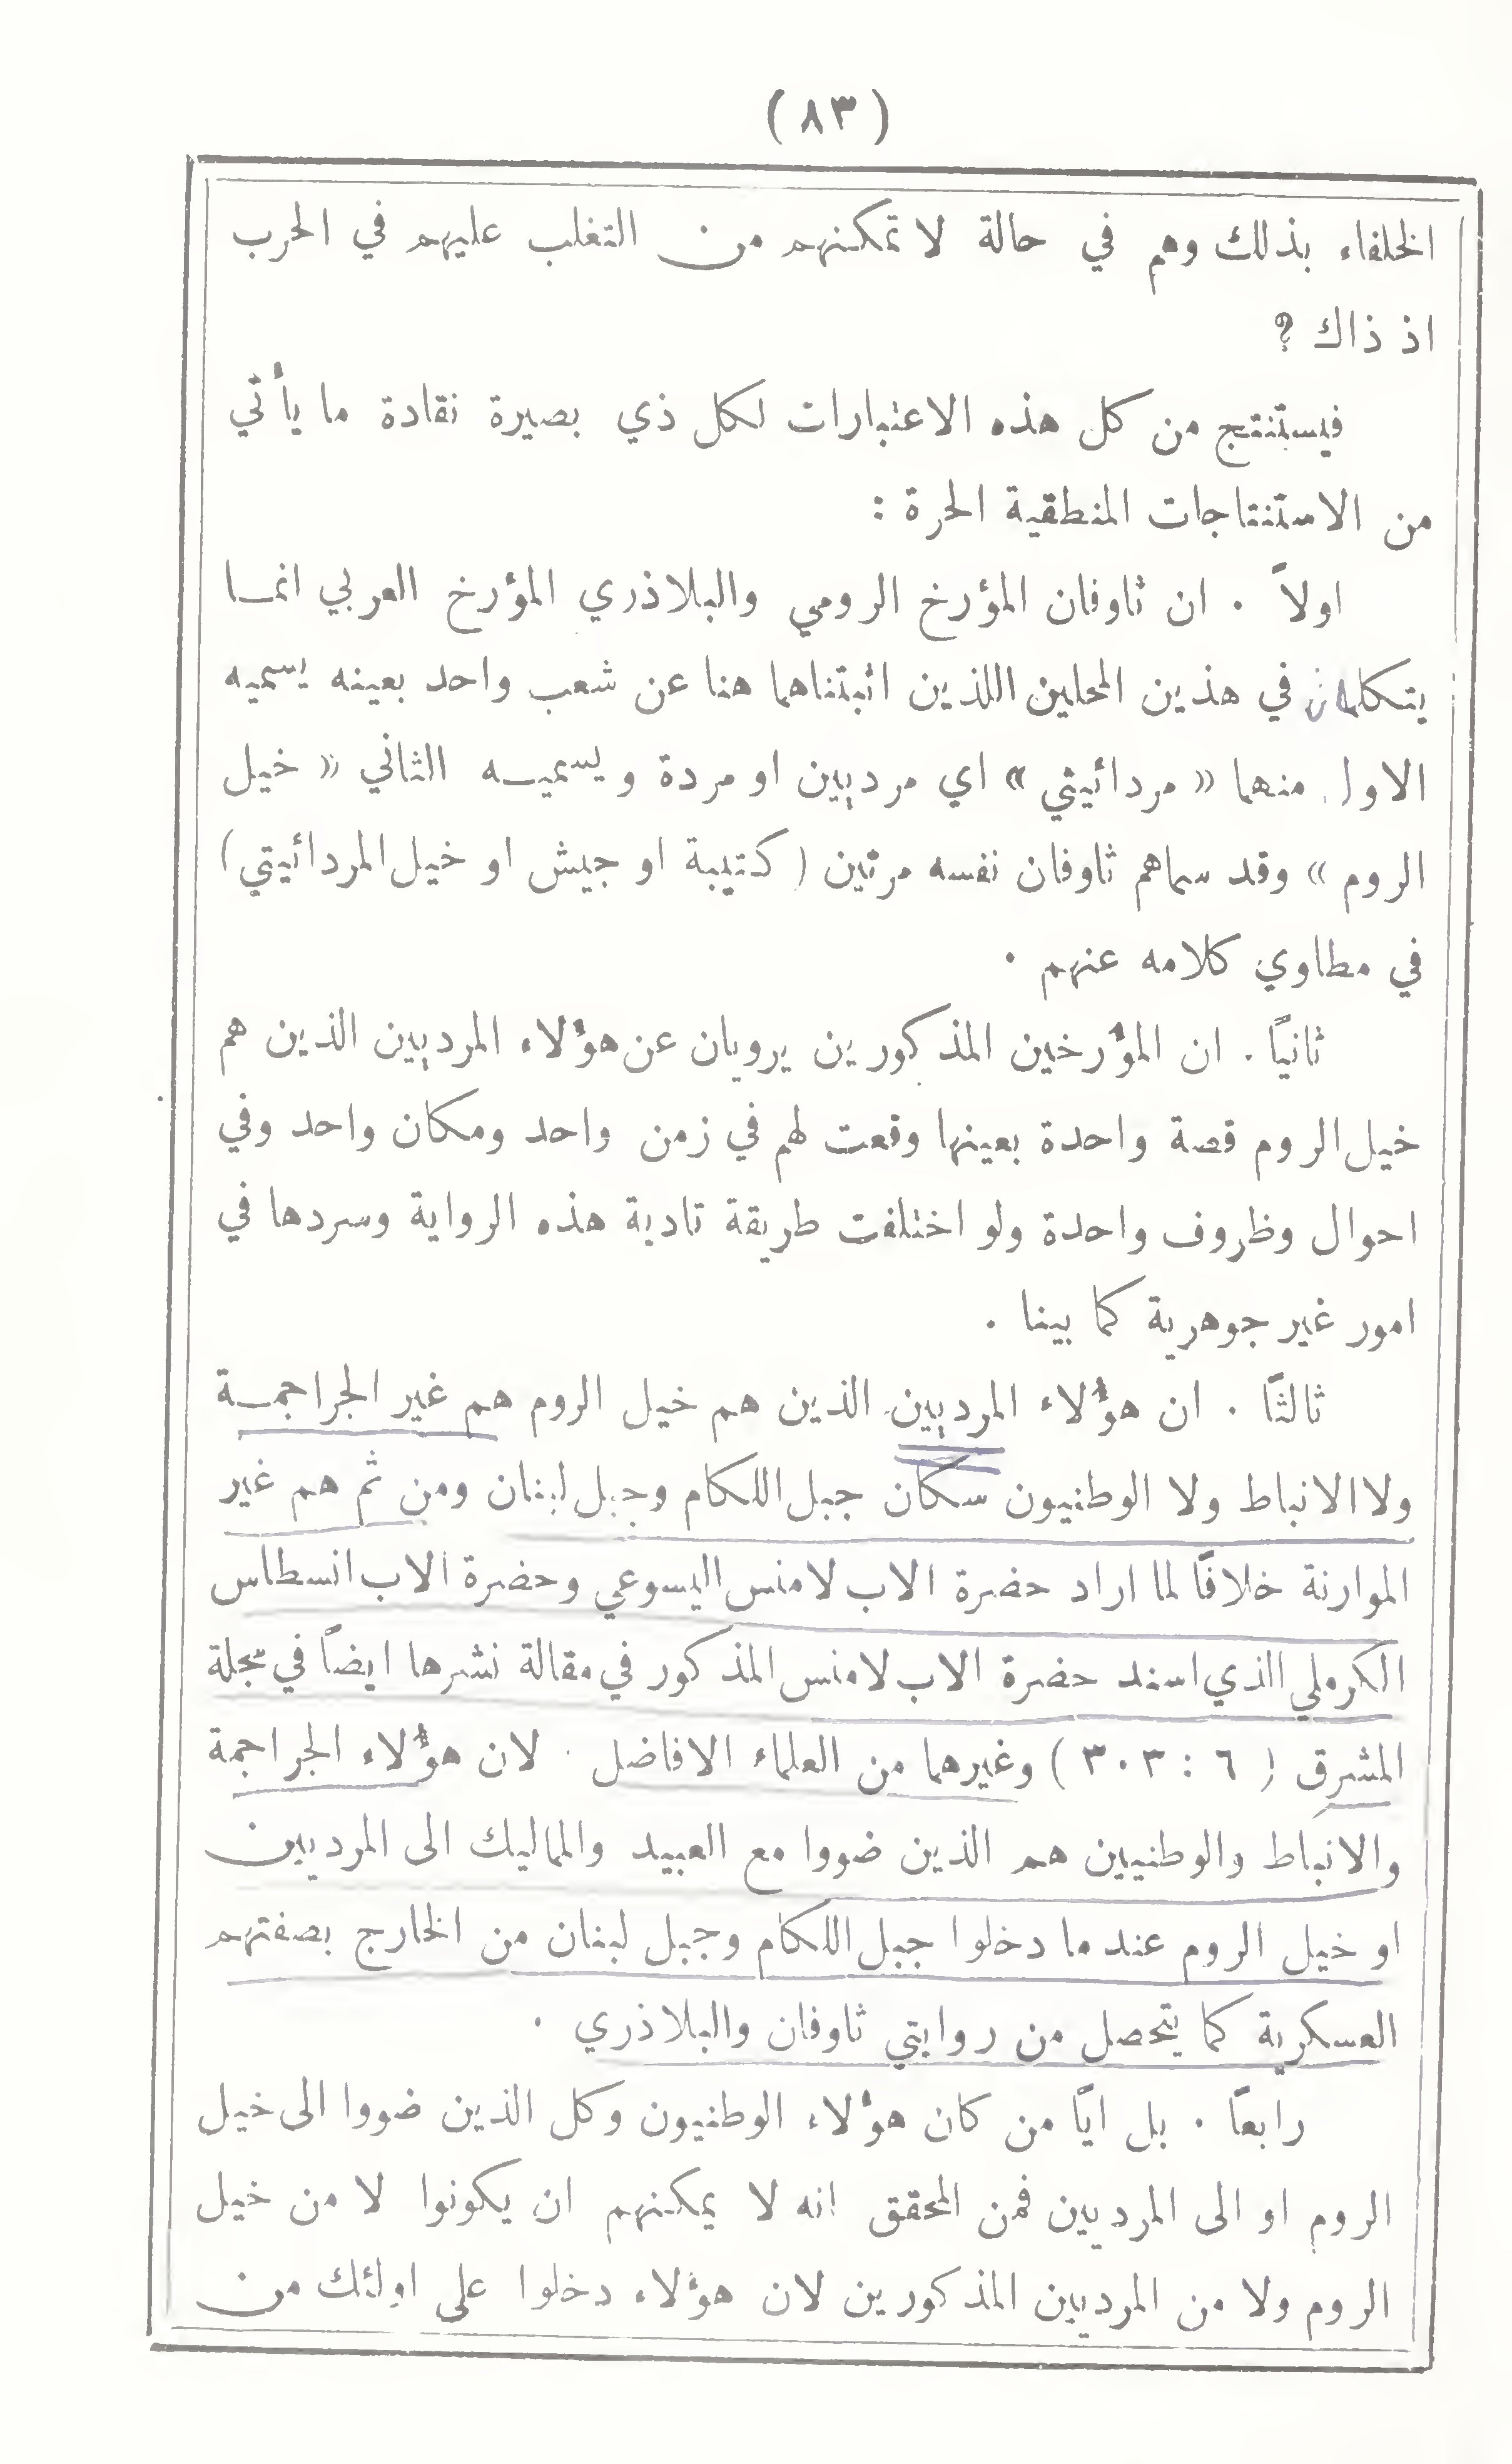 (٨٣)
الخلفاء بذلك وهم في حالة لا تمكنهم من التغلب عليهم في الحرب
اذ ذاك ؟
فيستنتج من كل هذه الاعتبارات لكل ذي بصيرة نقادة ما يأتي
من الاستنتاجات المنطقية الحرة :
اولاً . ان ثاوفان المؤرخ الرومي والبلاذري المؤرخ العربي انمـا
يتكلمان في هذين المحلين اللذين اثبتناهما هنا عن شعب واحد بعينه يسميه
الاول منهما « مردائيتي » اي مرديين او مردة ويسميـه الثاني « خيل
الروم » وقد سماهم ثاوفان نفسه مرتين ( كتيبة او جيش او خيل المردائيتي )
في مطاوي كلامه عنهم .
ثانيًا . ان المؤرخين المذكورين يرويان عن هؤلاء المرديين الذين هم
خيل الروم قصة واحدة بعينها وقعت لهم في زمن واحد ومكان واحد وفي
احوال وظروف واحدة ولو اختلفت طريقة تادية هذه الرواية وسردها في
امور غير جوهرية كما بينا .
ثالثًا . ان هؤلاء المرديين الذين هم خيل الروم هم غير الجراجمـة
ولا الانباط ولا الوطنيون سكان جبل اللكام وجبل لبنان ومن ثم هم غير
الموارنة خلافًا لما اراد حضرة الاب لامنس اليسوعي وحضرة الاب انسطاس
الكرملي الذي اسند حضرة الاب لامنس المذكور في مقالة نشرها ايضاً في مجلة
المشرق ( ٦ : ٣٠٣ ) وغيرهما من العلماء الافاضل . لان هؤلاء الجراجمة
والانباط والوطنيين هم الذين ضووا مع العبيد والمماليك الى المرديين
او خيل الروم عند ما دخلوا جبل اللكام وجبل لبنان من الخارج بصفتهم
العسكرية كما يتحصل من روايتي ثاوفان والبلاذري .
رابعًا . بل ايًا من كان هؤلاء الوطنيون وكل الذين ضووا الى خيل
الروم او الى المرديين فمن المحقق انه لا يمكنهم ان يكونوا لا من خيل
الروم ولا من المرديين المذكورين لان هؤلاء دخلوا على اولئك من